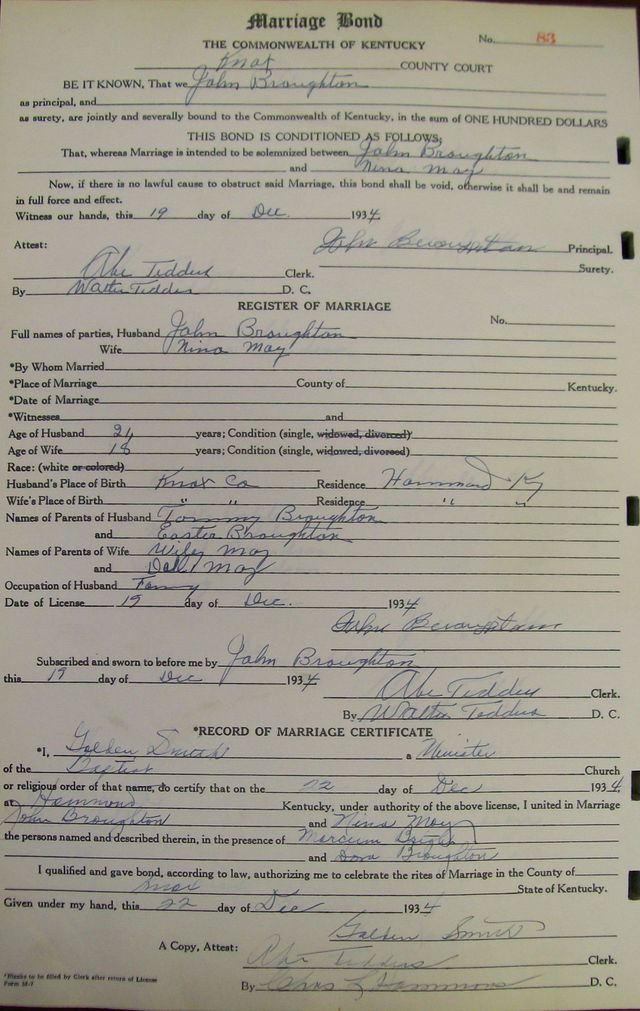 Marriage Bond
No. 83
THE COMMONWEALTH OF KENTUCKY
Knox COUNTY COURT
BE IT KNOWN, That we John Broughton
as principal, and
as surety, are jointly and severally bound to the Commonwealth of Kentucky, in the sum of ONE HUNDRED DOLLARS
THIS BOND IS CONDITIONED AS FOLLOWS:
That, whereas Marriage is intended to be solemnized between John Broughton
and Nina May
Now, if there is no lawful cause to obstruct said Marriage, this bond shall be void, otherwise it shall be and remain
in full force and effect.
Witness our hands, this 19 day of Dec. 1934
Attest: John Broughton Principal.
Surety.
Abe Tedders Clerk.
By Walter Tedders D. C.
REGISTER OF MARRIAGE
No.
Full names of parties, Husband John Broughton
Wife Nina May
*By Whom Married
*Place of Marriage County of Kentucky.
*Date of Marriage
*Witnesses and
Age of Husband 21 years; Condition (single, widowed, divorced)
Age of Wife 18 years; Condition (single, widowed, divorced)
Race: (white or colored)
Husband's Place of Birth Knox Co Residence Hammond Ky
Wife's Place of Birth " " Residence " "
Names of Parents of Husband Tommy Broughton
and Easter Broughton
Names of Parents of Wife Wiley May
and Dell May
Occupation of Husband
Date of License 19 day of Dec. 1934
John Broughton
Subscribed and sworn to before me by John Broughton
this 19 day of Dec 1934
Abe Tedders Clerk.
By Walter Tedders D. C.
*RECORD OF MARRIAGE CERTIFICATE
*I, Golden Smith a Minister
of the Baptist Church
or religious order of that name, do certify that on the 22 day of Dec 1934
at Hammond Kentucky, under authority of the above license, I united in Marriage
John Broughton and Nina May
the persons named and described therein, in the presence of Marcum
and Dora Broughton
I qualified and gave bond, according to law, authorizing me to celebrate the rites of Marriage in the County of
Knox State of Kentucky.
Given under my hand, this 22 day of Dec 1934
Golden Smith
A Copy, Attest: Abe Tedders Clerk.
By Chas L Hammons D. C.
*Blanks to be filled by Clerk after return of License